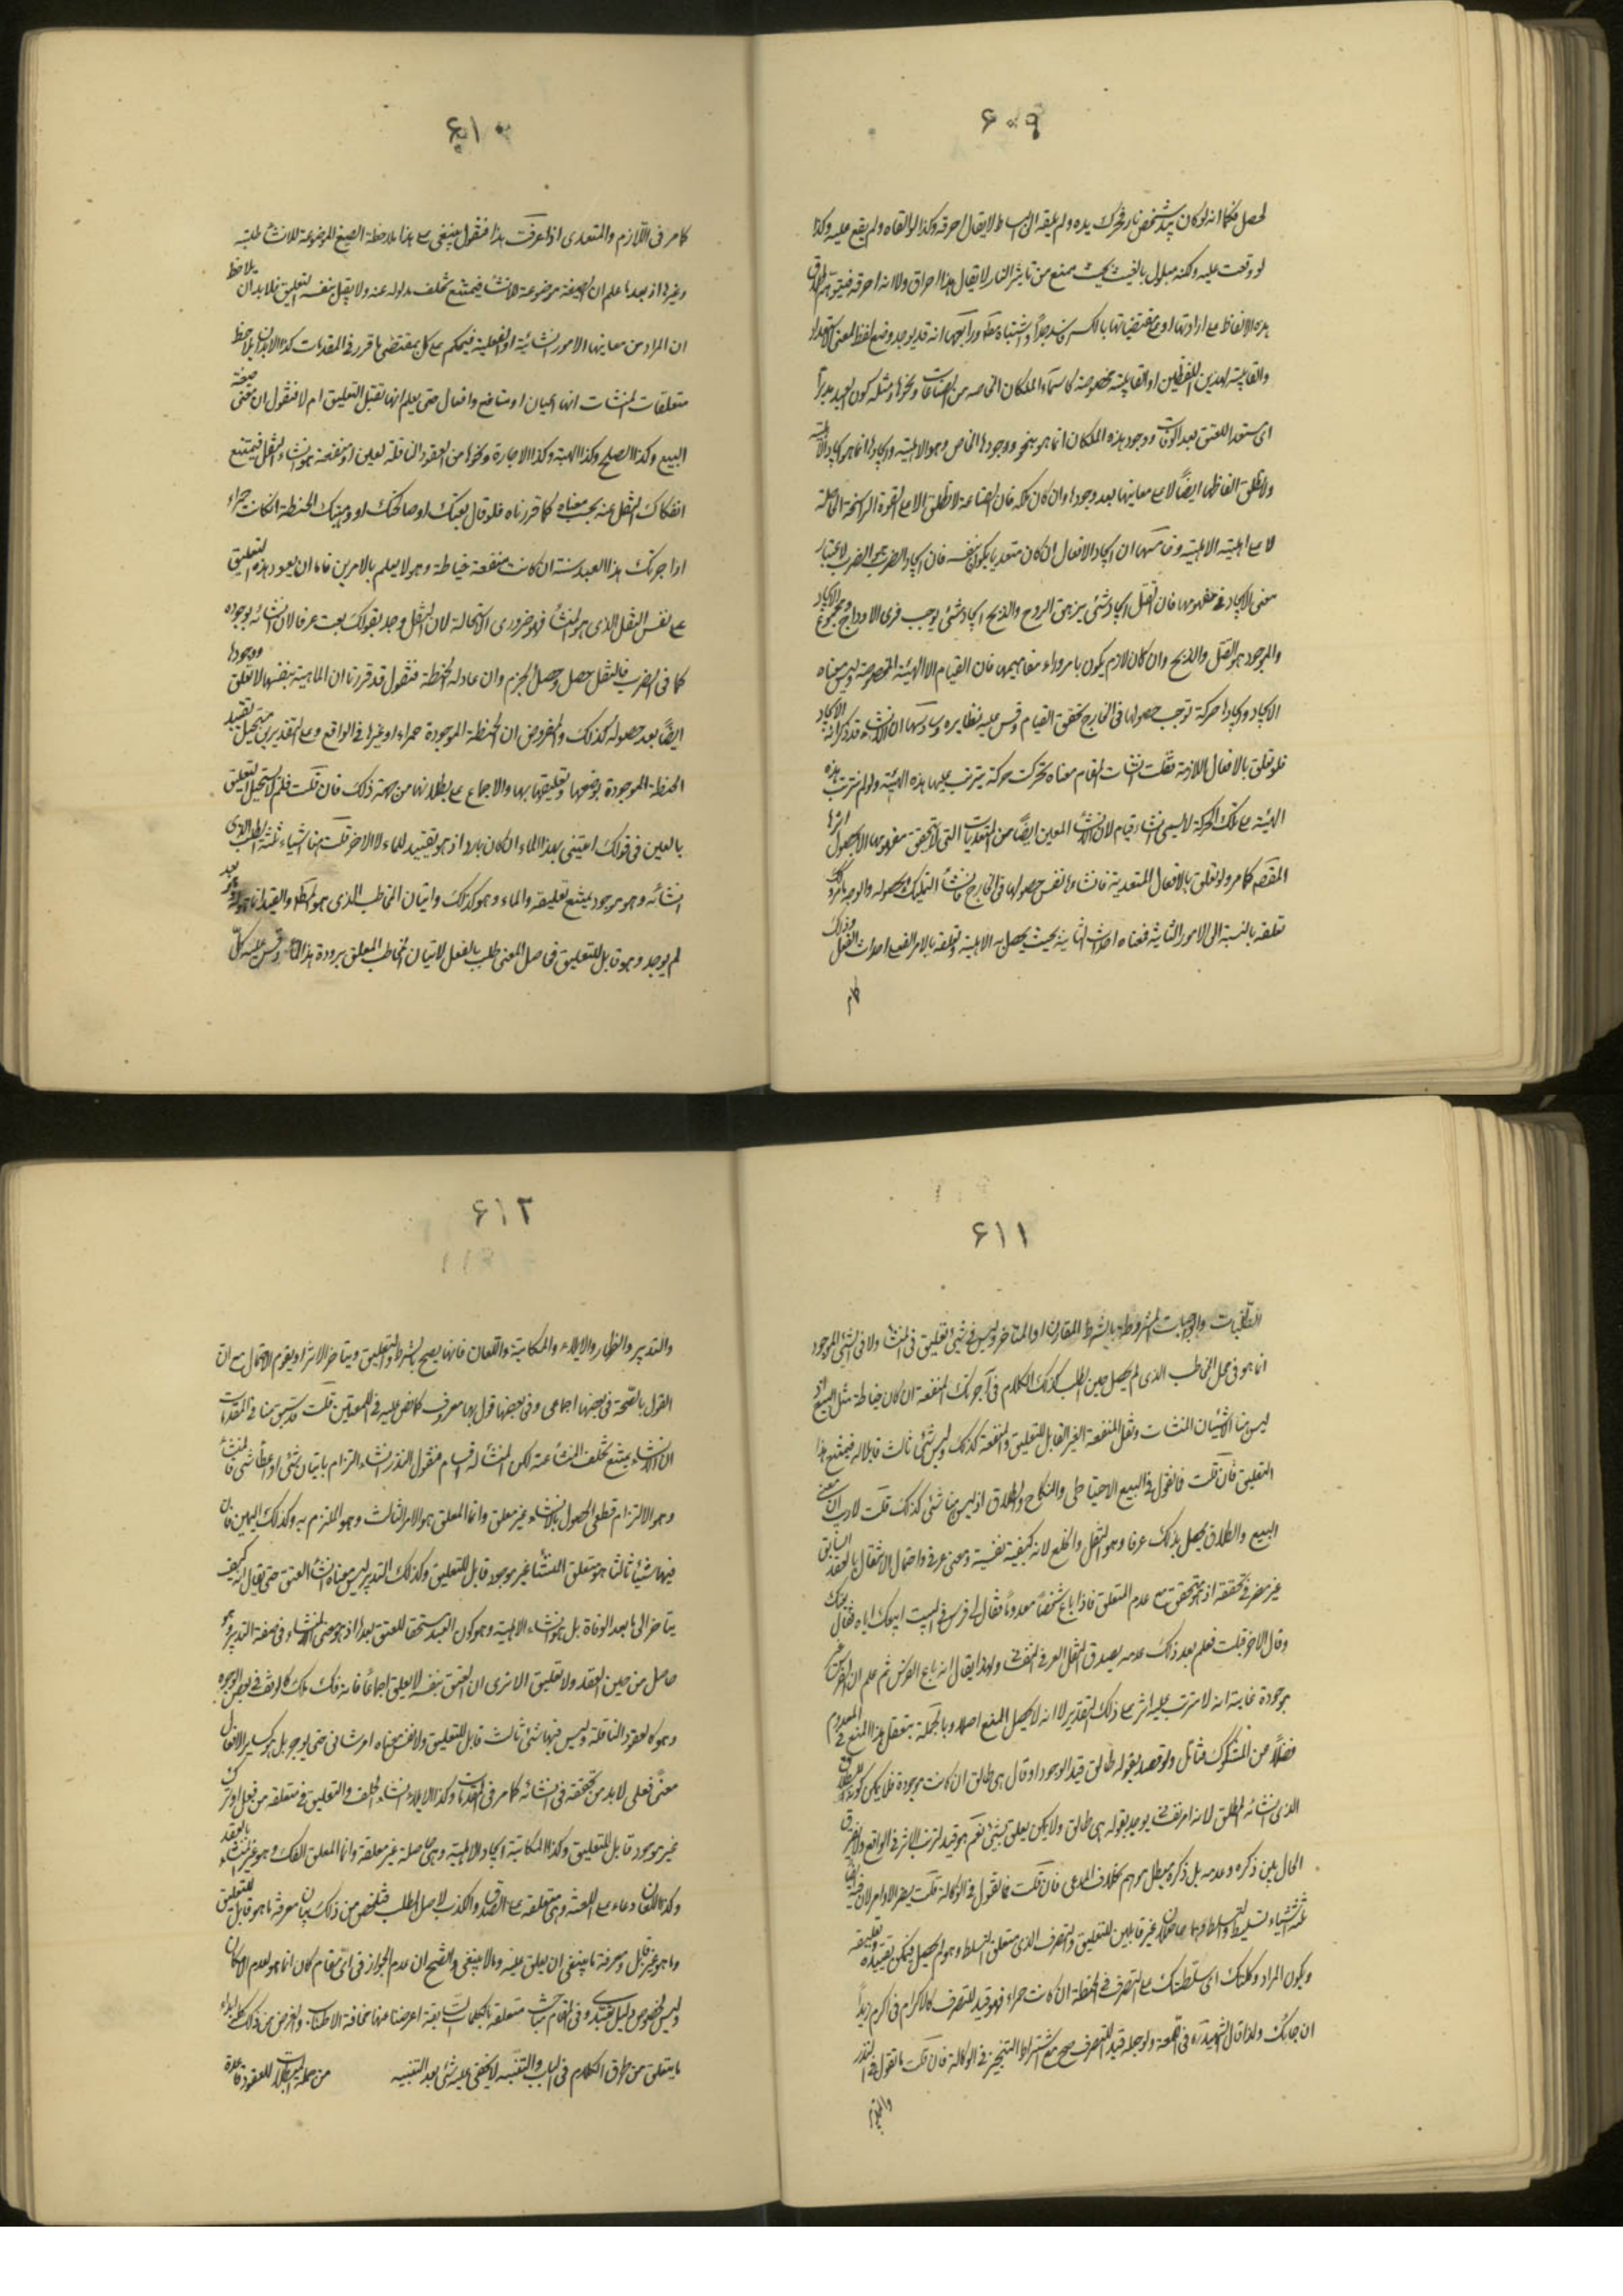 ۶۰۹
لحصل فكما انه لو كان بيد شخص نار فحرك يده ولم يلقه الى البساط لا يقال احرقه وكذا لو القاه ولم يقع عليه وكذا
لو وقعت عليه ولكنه مبلول بالغيث بحيث يمنع من تاثير النار لا يقال هذا احراق ولا انه احرقه
هذه الالفاظ مع ارادتها او مع مقتضياتها قد يوجد وضع لفظ لمعنى
والقابلية لهذين اللفظين او القابلية مخصوصة كاسماء الملكات الخاصة من الصناعات ونحوها ومثله كون العبد مدبراً
اى مستعدا للعتق بعد الوفات ووجود هذه الملكات انما هو بنحو وجودها الخاص وهو الاهلية وايجادها انما هو ايجاد الاهلية
ولا تطلق الفاظها ايضاً الا مع معانيها بعد وجودها وان كان ملكة فان الصناعة لا تطلق الا مع القوة الراسخة الحاصلة
لا مع اهلية الاهلية وخامسها ان ايجاد الافعال ان كان متعديا يكون بنفسه فان ايجاد الضرب هو الضرب لاعتبار
معنى الايجاد فى مفهومها فان القتل ايجاد شئ يزهق الروح والذبح ايجاد شئ يوجب فرى الاوداج ومجموع الايجاد
والموجود هو القتل والذبح وان كان لازم يكون بامر وراء مفاهيمها فان القيام الا الهيئة المخصوصة وليس معناه
الايجاد وايجادها حركة توجب حصولها فى الخارج تحقق القيام وقس عليه نظايره وسادسها ان الانشاء قد ذكر انه الايجاد
فلو تعلق بالافعال اللازمة فقلت انشات القيام معناه تحركت حركة يترتب عليها هذه الهيئة ولو لم تترتب هذه
الهيئة مع تلك الحركة لا يسمى انشاء قيام لان الانشاء المعين ايضاً من المتعديات التى لا يتحقق مفهومها الا بحصول اثرها
المقصم كما مر ولو تعلق بالافعال المتعدية فانشاءها نفس حصولها فى الخارج فانشاء التمليك حصوله والوجه ما مر وكك
تعلقه بالنسبة الى الامور الثانية فمعناه احداث انشائية بحيث يحصل به الاهلية وتعلقه بالامر الفعلى احداث الفعل وذلك
كامر
۶۱۰
كامر فى اللازم والمتعدى اذا عرفت هذا فنقول ينبغى مع هذا ملاحظة الصيغ الموضوعة للانشاء طلبية
وغيرها اذ بعدما علم ان الصيغة موضوعة للانشاء فيمتنع تخلف مدلوله عنه ولا يقبل بنفسه التعليق فلا بد ان يلاحظ
ان المراد من معانيها الامور الانشائية او الفعلية فيحكم مع كل بمقتضى ما قرر فى المقدمات كذا لا بد ان يلاحظ
متعلقات المنشات انها اعيان او منافع وافعال حتى يعلم انها تقبل التعليق ام لا فنقول ان معنى صيغة
البيع وكذا الصلح وكذا الهبة وكذا الاجارة ونحوها من العقود الناقلة لعين او منفعة هو انشاء النقل فيمتنع
انفكاك النقل عنه بحسب معناه كما قررناه فلو قال بعتك او صالحتك او وهبتك الحنطة ان كانت حمراء
او اجرتك هذا العبد سنة ان كانت منفعته خياطة وهو لا يعلم بالامرين فاما ان يعود هذه التعليق
على نفس النقل الذى هو المنشأ فهو ضرورى الاستحالة لان النقل وجد بقولك بعت عرفا لان انشائه وجوده
كما فى الضرب فالنقل حصل وحصل الجزم وان عاد له الحنطة فنقول قد قررنا ان الماهية بنفسها لا تعلق ووجودها
ايضاً بعد حصوله كذلك والمفروض ان الحنطة الموجودة حمراء او غيرها فى الواقع ومع التقديرين يستحيل تقييد
الحنطة الموجودة بوضعها وتعليقها بها والاجماع مع بطلانها من جهة ذلك فان قلت فلم لا يستحيل التعليق
بالعين فى قولك اسقنى هذا الماء ان كان باردا اذ هو تقييد للماء لا لاخر قلت هنا اشياء ثلثة الطلب الذى
انشائه وهو موجود يمتنع تعليقه والماء وهو كذلك واتيان المخاطب الذى هو المطلوب والقيد انما هو له وهو بعد
لم يوجد وهو قابل للتعليق فحاصل المعنى طلب بالفعل لاتيان المخاطب المعلق ببرودة هذا الماء وقس عليه كل
۶۱۱
الطلبيات والواجبات المشروطة بالشرط المقارن او المتاخر وليس فى شئ تعليق فى المنشأ ولا فى الشئ الموجود
انما هو فى عمل المخاطب الذى لم يحصل حين الطلب كذلك الكلام فى آجرتك المنفعة ان كان خياطة مثل البيع اذ
ليس هنا الا شيئان المنشات ونقل المنفعة الغير القابل للتعليق والمنفعة كذلك وليس شئ ثالث قابلا له فيمتنع هذا
التعليق فان قلت فما تقول فى البيع الاحتياطى والنكاح والطلاق اذ ليس هنا شئ كذلك قلت لا ريب ان معنى
البيع والطلاق يحصل بذلك عرفا وهو النقل والخلع لانه كيفية نفسية ومعنى عرفى واحتمال الانتقال بالعقد السابق
غير مضر فى تحققه اذ هو متحقق مع عدم التعلق فاذا باع شخصاً معدوماً فقال لى فرس فى البيت ابيعك اياه فقال بعتك
وقال الاخر قبلت فعلم بعد ذلك عدمه يصدق النقل العرفى ولهذا يقال انه باع الفرس ثم علم ان الفرس غير
موجودة غايته انه لا يترتب عليه اثر مع ذلك التقدير لا انه لا يحصل البيع اصلا وبالجملة يتعقل هذا المنع فى المعدوم
فضلاً من المشكوك فتامل ولو قصد بقوله طالق قيد الوجود او قال هى طالق ان كانت موجودة فلا يمكن كونه قيدا للطلاق
الذى انشائه المطلق لانه امر نفسى يوجد بقوله هى طالق ولا يمكن تعلق بشئ نعم هو قيد لترتب الاثر فى الواقع ولا يفرق
الحال بين ذكره وعدمه بل ذكره مبطل موهم بخلاف المدعى فان قلت فما تقول فى الوكالة قلت يضر الاوامر لان فيها
ثلثة اشياء تسليط وتسلط وهما حاصلان غير قابلين للتعليق والتصرف الذى متعلق التسلط وهو لم يحصل فيمكن تقييده وتعليقه
ويكون المراد وكلتك اى سلطتك مع التصرف فى الحنطة ان كانت حمراء فهو قيد للتصرف كالاكرام فى اكرم زيداً
ان جائك ولذا قال الشهيد ره فى اللمعة ولو جعله قيد التصرف صح مع اشتراط التنجيز فى الوكالة فان قلت ما تقول فى النذر
۶۱۲
والتدبير والظهار والايلاء والمكاتبة واللعان فانها يصح بالشرط والتعليق ويتاخر الاثر او يقوم الاحتمال مع ان
القول بالصحة فى بعضها اجماعى وفى بعضها قول بها معروف كما نص عليه فى المعلقين قلت قد سبق منا فى المقدمات
ان الانشاء يمتنع تخلف المنشأ عنه لكن المنشأ له اقسام فنقول النذر انشاء التزام باتيان شئ او اعطاء شئ فالمنشأ
وهو الالتزام قطعى الحصول بالانشاء غير معلق وانما المعلق هو الامر الثالث وهو الملتزم به وكذلك اليمين فان
فيها شيئا ثالثا هو متعلق المنشأ غير موجود قابل للتعليق وكذلك التدبير ليس معناه انشاء العتق حتى يقال انه كيف
يتاخر الى ما بعد الوفاة بل هو انشاء الاهلية وهو كون العبد مستحقا للعتق بعدها اذ هو معنى الانشاء فى صيغة التدبير وهو
حاصل من حين العقد ولا تعليق الا ترى ان العتق بنفسه لا يعلق اجماعاً فانه فك ملك كالوقف فى بعض الوجوه
وهو كالعقود الناقلة وليس فيها شئ ثالث قابل للتعليق ولا نفس معناه امر شانى حتى يوجد بل هو كساير الافعال
معنى فعلى لا بد من تحققه فى انشائه كما مر فى المقدمات وكذا الايلاء انشاء الحلف والتعليق فى متعلقه من فعل او ترك
غير موجود قابل للتعليق وكذا المكاتبة ايجاد الاهلية وهى حاصلة غير معلقة وانما المعلق الفك وهو غير المنشاء بالعقد
وكذا اللعان دعاء مع اللعنة وهى متعلقة مع الصدق والكذب لاصل الطلب فتلخص من ذلك بيان معرفة ما هو قابل للتعليق
وما هو غير قابل ومعرفة ما ينبغى ان يعلق عليه وما لا ينبغى والصحيح ان عدم الجواز فى اى مقام كان انما هو لعدم الامكان
وليس لخصوص دليل تعبدى وفى المقام مباحث متعلقة بالكلمات السابقة اعرضنا عنها مخافة الاطناب والغرض من ذلك كله ابداء
ما يتعلق من طرق الكلام فى الباب والتنبه لا يخفى عليه شئ بعد التنبيه من جملة المبطلات للعقود قاعدة